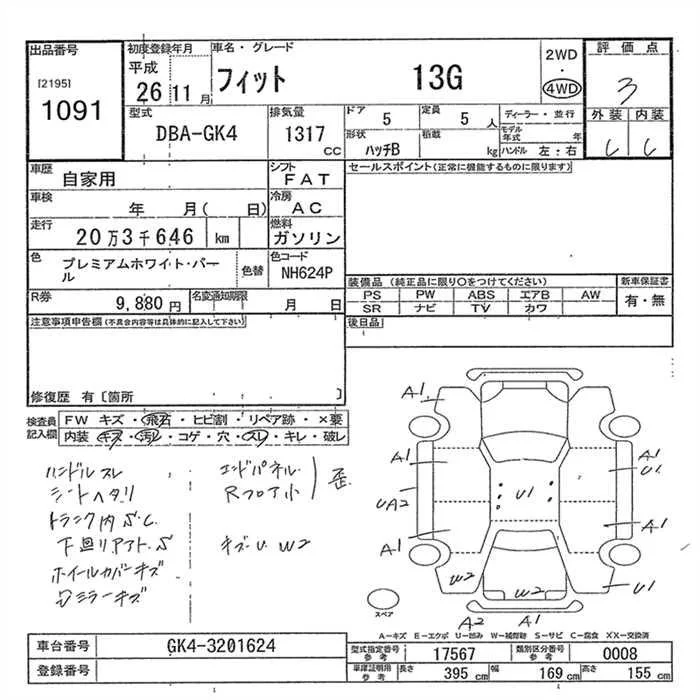 出品番号 初度登録年月 車名・グレード 2WD 評価点
[2195] 平成 フィット 13G 4WD 3
1091 26 11月
型式 排気量 ドア 5 定員 5 人 ディーラー・並行 外装 内装
DBA-GK4 1317 cc 形状 ハッチB 積載 kg モデル年式 年 ハンドル 左・右 C C
車歴 自家用 シフト FAT セールスポイント(正常に機能するものに限ります)
車検 年 月( 日) 冷房 AC
走行 20万3千646 km 燃料 ガソリン
色 プレミアムホワイト・パール 色替 色コード NH624P
装備品(純正品に限り○をつけてください) 新車保証書
R券 9,880円 名変通知期限 月 日 PS PW ABS エアB AW 有・無
SR ナビ TV カワ
注意事項申告欄(不具合内容等は具体的に記入して下さい) 後日品
修復歴 有〔箇所 〕
検査員記入欄 FW キズ・飛石・ヒビ割・リペア跡・×要
内装 キズ・汚レ・コゲ・穴・スレ・キレ・破レ
ハンドルスレ エンドパネル 歪
シートヘタリ Rフロア小
トランク内S.C.
下廻リアアトS キズU W2
ホイールカバーキズ
ミラーキズ
A1
A1 A1
U1
UA2 U1
A1 A1
W2 W2 U1
スペア A2 A1
A-キズ E-エクボ U-凹み W-補修跡 S-サビ C-腐食 XX-交換済
車台番号 GK4-3201624 型式指定番号参考 17567 類別区分番号参考 0008
登録番号 車庫証明用参考 長さ 395 cm 幅 169 cm 高さ 155 cm